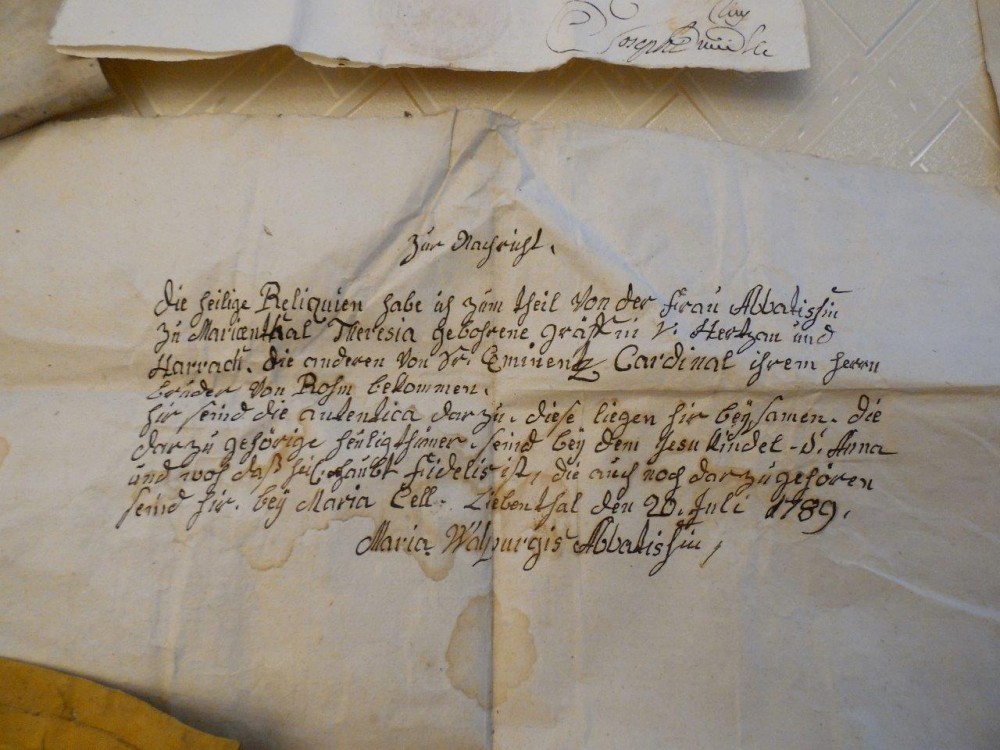 Joseph
Zur Nachricht.
die heilige Reliquien habe ich zum theil von der frau Abbatissin
zu Marienthal Theresia gebohrene gräffin v. Hertzan und
Harrach. die anderen von Sr. Eminentz Cardinal ihrem herrn
bruder von Rohm bekommen.
hir seind die autentica darzu. diese liegen hir beÿsamen. die
darzu gehörige heiligthümer. seind beÿ dem Jesukindel - S. Anna
und wo daß heil. haubt fidelis ist, die auch noch darzu gehören
seind hir. beÿ Maria Cell. Liebenthal den 20. Juli 1789.
Maria Walpurgis Abbatissin,